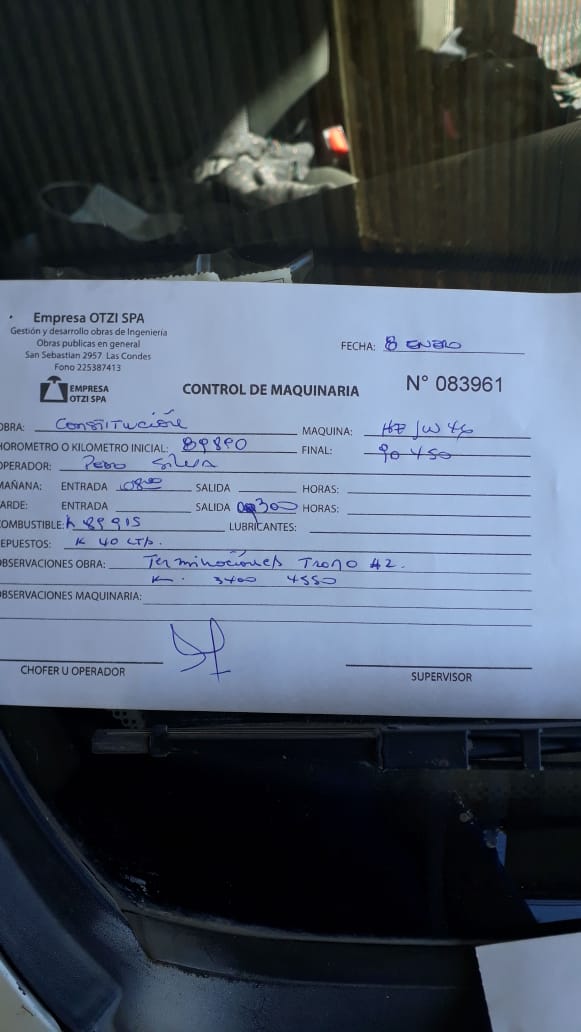 Empresa OTZI SPA
Gestión y desarrollo obras de Ingenieria
Obras publicas en general
San Sebastian 2957 Las Condes
Fono 225387413
EMPRESA
OTZI SPA
FECHA: 8 ENERO
CONTROL DE MAQUINARIA
N° 083961
OBRA: Constitución MAQUINA:
HOROMETRO O KILOMETRO INICIAL: 89890 FINAL: 90450
OPERADOR: Pedro Silva
MAÑANA: ENTRADA 0800 SALIDA HORAS:
TARDE: ENTRADA SALIDA 300 HORAS:
COMBUSTIBLE: K 89915 LUBRICANTES:
REPUESTOS: K 40 LTS.
OBSERVACIONES OBRA: Terminaciones Tramo #2.
K. 3400 4550
OBSERVACIONES MAQUINARIA:
CHOFER U OPERADOR
SUPERVISOR